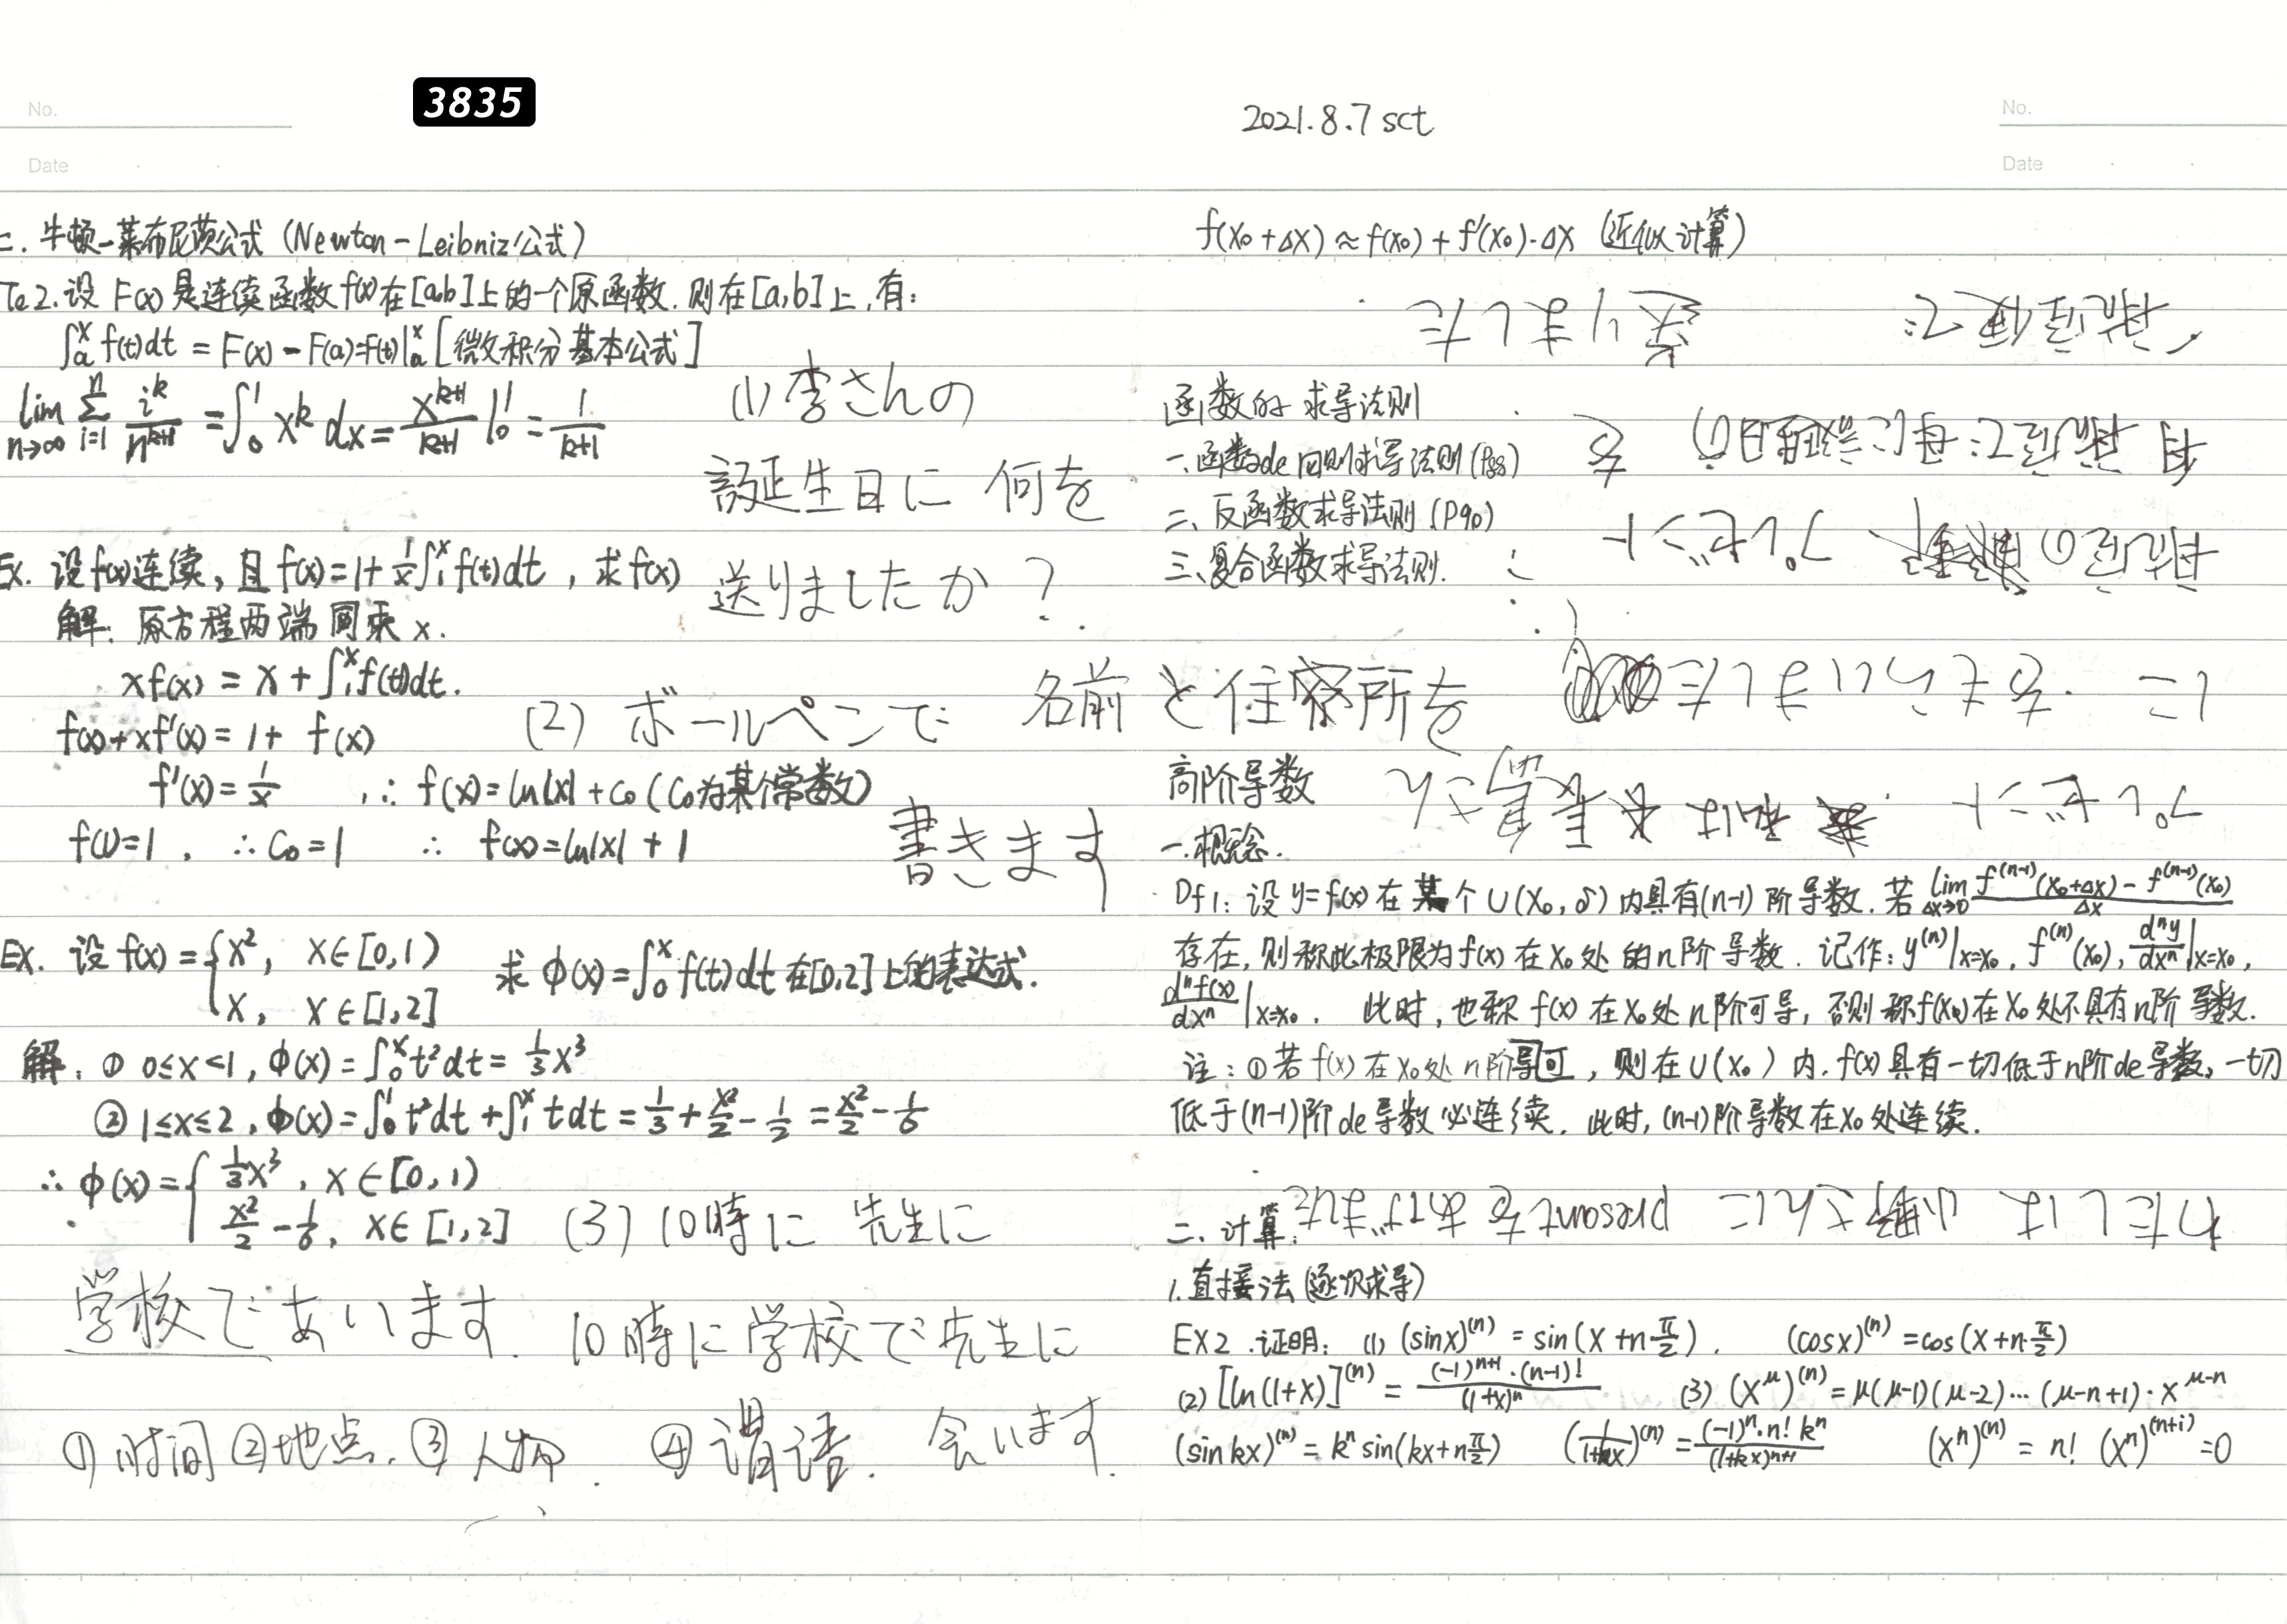 3835
No.
Date
二. 牛顿-莱布尼茨公式 (Newton-Leibniz公式)
Te 2. 设 F(x) 是连续函数f(x)在[a,b]上的一个原函数. 则在[a,b]上, 有:
∫ₐˣ f(t)dt = F(x) - F(a) = F(t)|ₐˣ [微积分基本公式]
lim n→∞ Σ i=1 n i^k/n^(k+1) = ∫₀¹ x^k dx = x^(k+1)/(k+1) |₀¹ = 1/(k+1)
(1) 李さんの
誕生日に 何を
送りましたか?
Ex. 设f(x)连续, 且 f(x)=1+ 1/x ∫₁ˣ f(t)dt , 求 f(x)
解: 原方程两端同乘 x.
xf(x) = x + ∫₁ˣ f(t)dt.
f(x)+xf'(x) = 1+ f(x)
(2) ボールペンで 名前と住所を
f'(x) = 1/x , ∴ f(x)=ln|x|+C₀ (C₀为某个常数)
書きます
f(1)=1 , ∴ C₀=1 ∴ f(x)=ln|x| + 1
Ex. 设 f(x) = { x², x∈[0,1)
x, x∈[1,2]
求 ϕ(x)=∫₀ˣ f(t)dt 在[0,2]上的表达式.
解. ① 0≤x<1, ϕ(x)=∫₀ˣ t²dt = 1/3 x³
② 1≤x≤2, ϕ(x)=∫₀¹ t²dt + ∫₁ˣ tdt = 1/3 + x²/2 - 1/2 = x²/2 - 1/6
∴ ϕ(x) = { 1/3 x³, x∈[0,1)
x²/2 - 1/6, x∈[1,2]
(3) 10時に 先生に
学校であいます. 10時に学校で先生に
① 时间 ②地点. ③人物. ④谓语. 会います.
2021.8.7 sct
No.
Date
f(x₀+Δx) ≈ f(x₀) + f'(x₀)·Δx (近似计算)
函数的 求导法则
一. 函数de四则求导法则(P88)
二. 反函数求导法则 (P90)
三. 复合函数求导法则.
高阶导数
一. 概念.
Df1: 设 y=f(x) 在某个U(x₀,δ) 内具有(n-1) 阶导数. 若 lim Δx→0 (f^(n-1)(x₀+Δx) - f^(n-1)(x₀))/Δx
存在, 则称此极限为f(x) 在 x₀处的n阶导数. 记作: y^(n)|x=x₀, f^(n)(x₀), dⁿy/dxⁿ|x=x₀,
dⁿf(x)/dxⁿ|x=x₀. 此时, 也称 f(x) 在 x₀处 n阶可导, 否则称f(x)在x₀处不具有n阶导数.
注: ①若 f(x) 在x₀处 n阶导可, 则在U(x₀) 内. f(x)具有一切低于n阶de导数, 一切
低于(n-1)阶de导数必连续. 此时, (n-1)阶导数在x₀处连续.
わたしは 小野さんに presentをあげました
二. 计算:
1. 直接法 (逐次求导)
EX2. 证明: (1) (sinx)^(n) = sin(x+n·π/2). (cosx)^(n) = cos(x+n·π/2)
(2) [ln(1+x)]^(n) = (-1)^(n+1)·(n-1)!/(1+x)ⁿ (3) (x^μ)^(n) = μ(μ-1)(μ-2)···(μ-n+1)·x^(μ-n)
(sin kx)^(n) = kⁿ sin(kx+nπ/2) (1/(1+kx))^(n) = (-1)ⁿ·n! kⁿ/(1+kx)^(n+1) (xⁿ)^(n) = n! (xⁿ)^(n+i) = 0